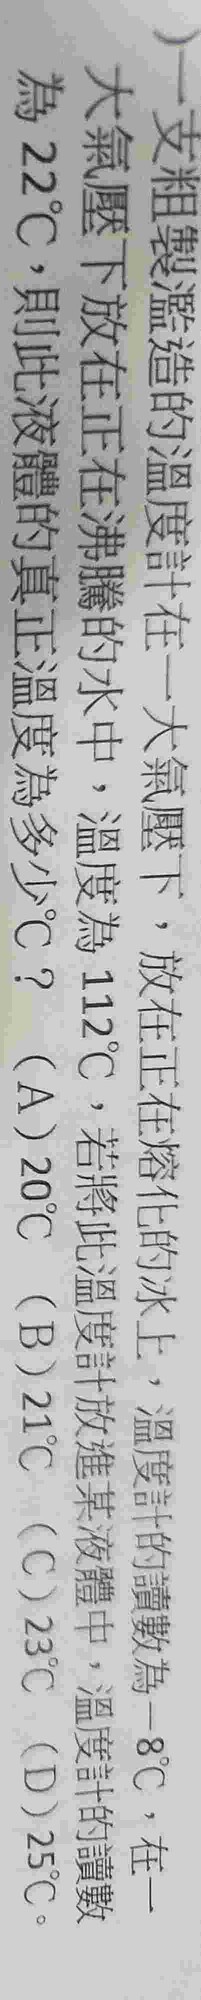 )一支粗製濫造的溫度計在一大氣壓下，放在正在熔化的冰上，溫度計的讀數為－8℃，在一
大氣壓下放在正在沸騰的水中，溫度為 112℃，若將此溫度計放進某液體中，溫度計的讀數
為 22℃，則此液體的真正溫度為多少℃？ (A)20℃ (B)21℃ (C)23℃ (D)25℃。